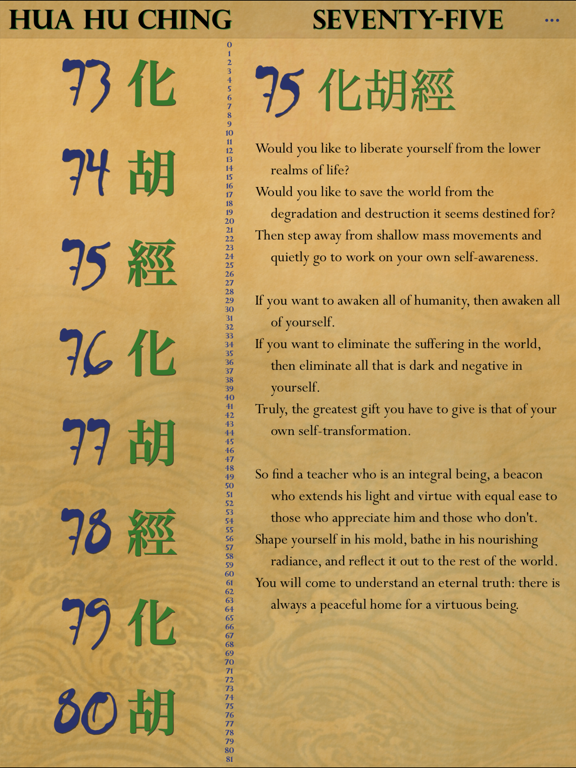 HUA HU CHING
SEVENTY-FIVE
...
73 化
74 胡
75 經
76 化
77 胡
78 經
79 化
80 胡
0
1
2
3
4
5
6
7
8
9
10
11
12
13
14
15
16
17
18
19
20
21
22
23
24
25
26
27
28
29
30
31
32
33
34
35
36
37
38
39
40
41
42
43
44
45
46
47
48
49
50
51
52
53
54
55
56
57
58
59
60
61
62
63
64
65
66
67
68
69
70
71
72
73
74
75
76
77
78
79
80
81
75 化胡經
Would you like to liberate yourself from the lower
realms of life?
Would you like to save the world from the
degradation and destruction it seems destined for?
Then step away from shallow mass movements and
quietly go to work on your own self-awareness.
If you want to awaken all of humanity, then awaken all
of yourself.
If you want to eliminate the suffering in the world,
then eliminate all that is dark and negative in
yourself.
Truly, the greatest gift you have to give is that of your
own self-transformation.
So find a teacher who is an integral being, a beacon
who extends his light and virtue with equal ease to
those who appreciate him and those who don't.
Shape yourself in his mold, bathe in his nourishing
radiance, and reflect it out to the rest of the world.
You will come to understand an eternal truth: there is
always a peaceful home for a virtuous being.